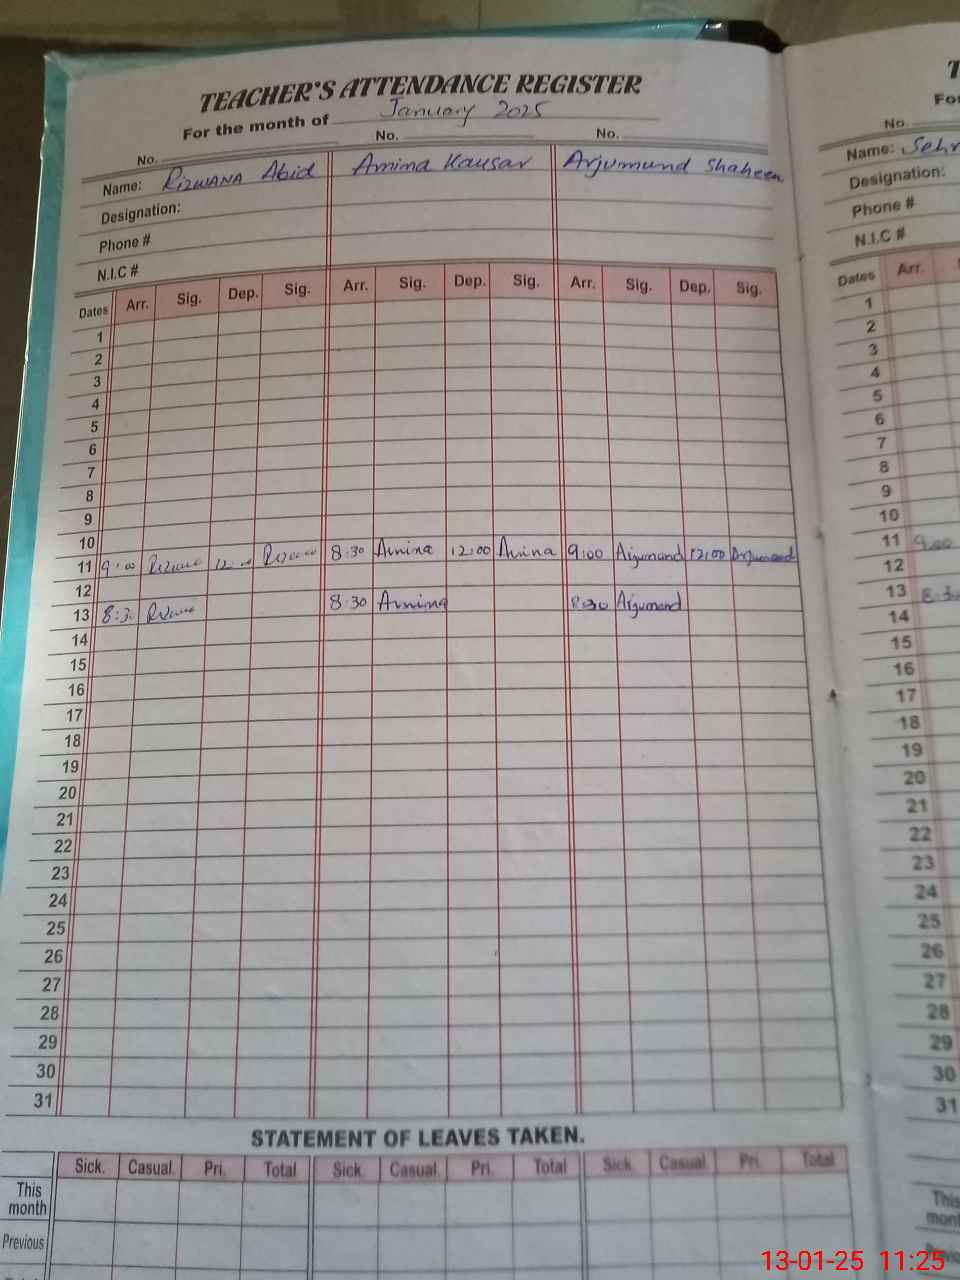 TEACHER'S ATTENDANCE REGISTER
For the month of January 2025
No. No. No.
Name: Rizwana Abid Amina Kausar Arjumund Shaheen
Designation:
Phone #
N.I.C #
Dates Arr. Sig. Dep. Sig. Arr. Sig. Dep. Sig. Arr. Sig. Dep. Sig.
1
2
3
4
5
6
7
8
9
10
11 9:00 12:00 8:30 Amina 12:00 Amina 9:00 Arjumand 12:00 Arjumand
12
13 8:30 8:30 Amina 8:30 Arjumand
14
15
16
17
18
19
20
21
22
23
24
25
26
27
28
29
30
31
STATEMENT OF LEAVES TAKEN.
Sick. Casual. Pri. Total Sick. Casual. Pri. Total Sick. Casual. Pri. Total
This
month
Previous
No.
Name: Sehr
Designation:
Phone #
N.I.C #
Dates Arr.
1
2
3
4
5
6
7
8
9
10
11 9:00
12
13 8:3
14
15
16
17
18
19
20
21
22
23
24
25
26
27
28
29
30
31
This
mont
13-01-25 11:25